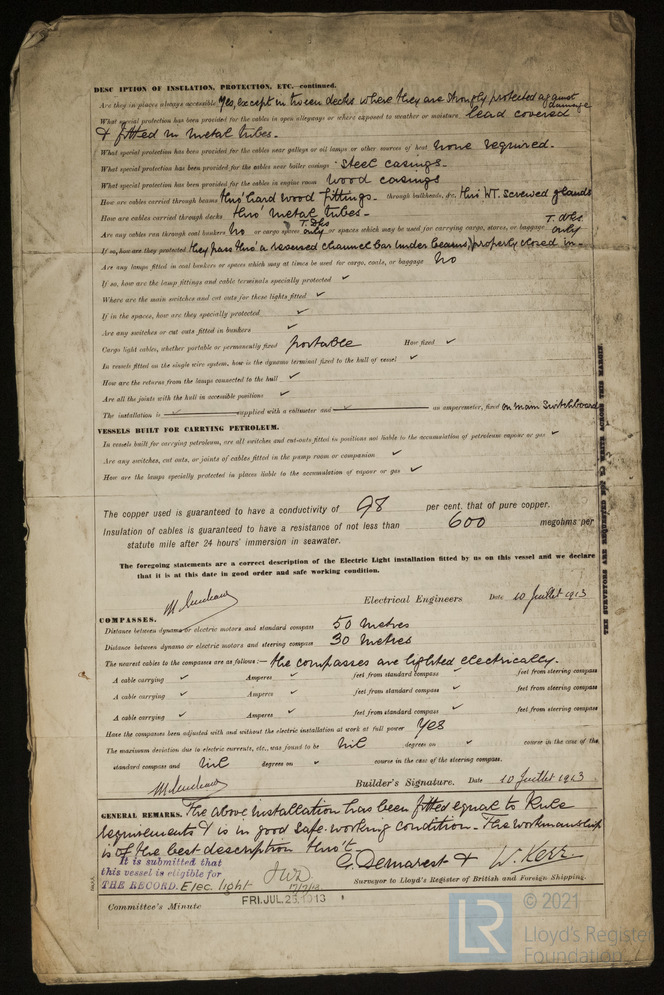 DESC IPTION OF INSULATION, PROTECTION, ETC.—continued.
Are they in places always accessible Yes, except in tween decks where they are strongly protected against damage
What special protection has been provided for the cables in open alleyways or where exposed to weather or moisture lead covered
& fitted in metal tubes.
What special protection has been provided for the cables near galleys or oil lamps or other sources of heat none required.
What special protection has been provided for the cables near boiler casings steel casings.
What special protection has been provided for the cables in engine room wood casings
How are cables carried through beams thro' hard wood fittings. through bulkheads, &c. thro' WT. screwed glands
How are cables carried through decks thro' metal tubes.
Are any cables run through coal bunkers no or cargo spaces T. Dks only or spaces which may be used for carrying cargo, stores, or baggage T. dks. only
If so, how are they protected they pass thro' a reversed channel bar under beams, properly closed in.
Are any lamps fitted in coal bunkers or spaces which may at times be used for cargo, coals, or baggage No
If so, how are the lamp fittings and cable terminals specially protected ✓
Where are the main switches and cut outs for these lights fitted ✓
If in the spaces, how are they specially protected ✓
Are any switches or cut outs fitted in bunkers ✓
Cargo light cables, whether portable or permanently fixed portable How fixed ✓
In vessels fitted on the single wire system, how is the dynamo terminal fixed to the hull of vessel ✓
How are the returns from the lamps connected to the hull ✓
Are all the joints with the hull in accessible positions ✓
The installation is ✓ supplied with a voltmeter and ✓ an amperemeter, fixed on main Switchboard
VESSELS BUILT FOR CARRYING PETROLEUM.
In vessels built for carrying petroleum, are all switches and cut-outs fitted in positions not liable to the accumulation of petroleum vapour or gas ✓
Are any switches, cut outs, or joints of cables fitted in the pump room or companion ✓
How are the lamps specially protected in places liable to the accumulation of vapour or gas ✓
The copper used is guaranteed to have a conductivity of 98 per cent. that of pure copper.
Insulation of cables is guaranteed to have a resistance of not less than 600 megohms per
statute mile after 24 hours' immersion in seawater.
The foregoing statements are a correct description of the Electric Light installation fitted by us on this vessel and we declare
that it is at this date in good order and safe working condition.
Electrical Engineers Date 10 Juillet 1913
COMPASSES.
Distance between dynamo or electric motors and standard compass 50 metres
Distance between dynamo or electric motors and steering compass 30 metres
The nearest cables to the compasses are as follows:— the compasses are lighted electrically.
A cable carrying ✓ Amperes ✓ feet from standard compass ✓ feet from steering compass
A cable carrying ✓ Amperes ✓ feet from standard compass ✓ feet from steering compass
A cable carrying ✓ Amperes ✓ feet from standard compass ✓ feet from steering compass
Have the compasses been adjusted with and without the electric installation at work at full power Yes
The maximum deviation due to electric currents, etc., was found to be Nil degrees on ✓ course in the case of the
standard compass and Nil degrees on ✓ course in the case of the steering compass.
Builder's Signature. Date 10 Juillet 1913
GENERAL REMARKS. The above installation has been fitted equal to Rule
requirements & is in good safe working condition. The workmanship
is of the best description thro't.
G. Demarest & W. Kerr
It is submitted that
this vessel is eligible for
THE RECORD. Elec. light JWD 17/7/13
Surveyor to Lloyd's Register of British and Foreign Shipping.
Committee's Minute FRI. JUL. 25. 1913
THE SURVEYORS ARE REQUESTED NOT TO WRITE ACROSS THIS MARGIN.
LR
© 2021
Lloyd's Register
Foundation